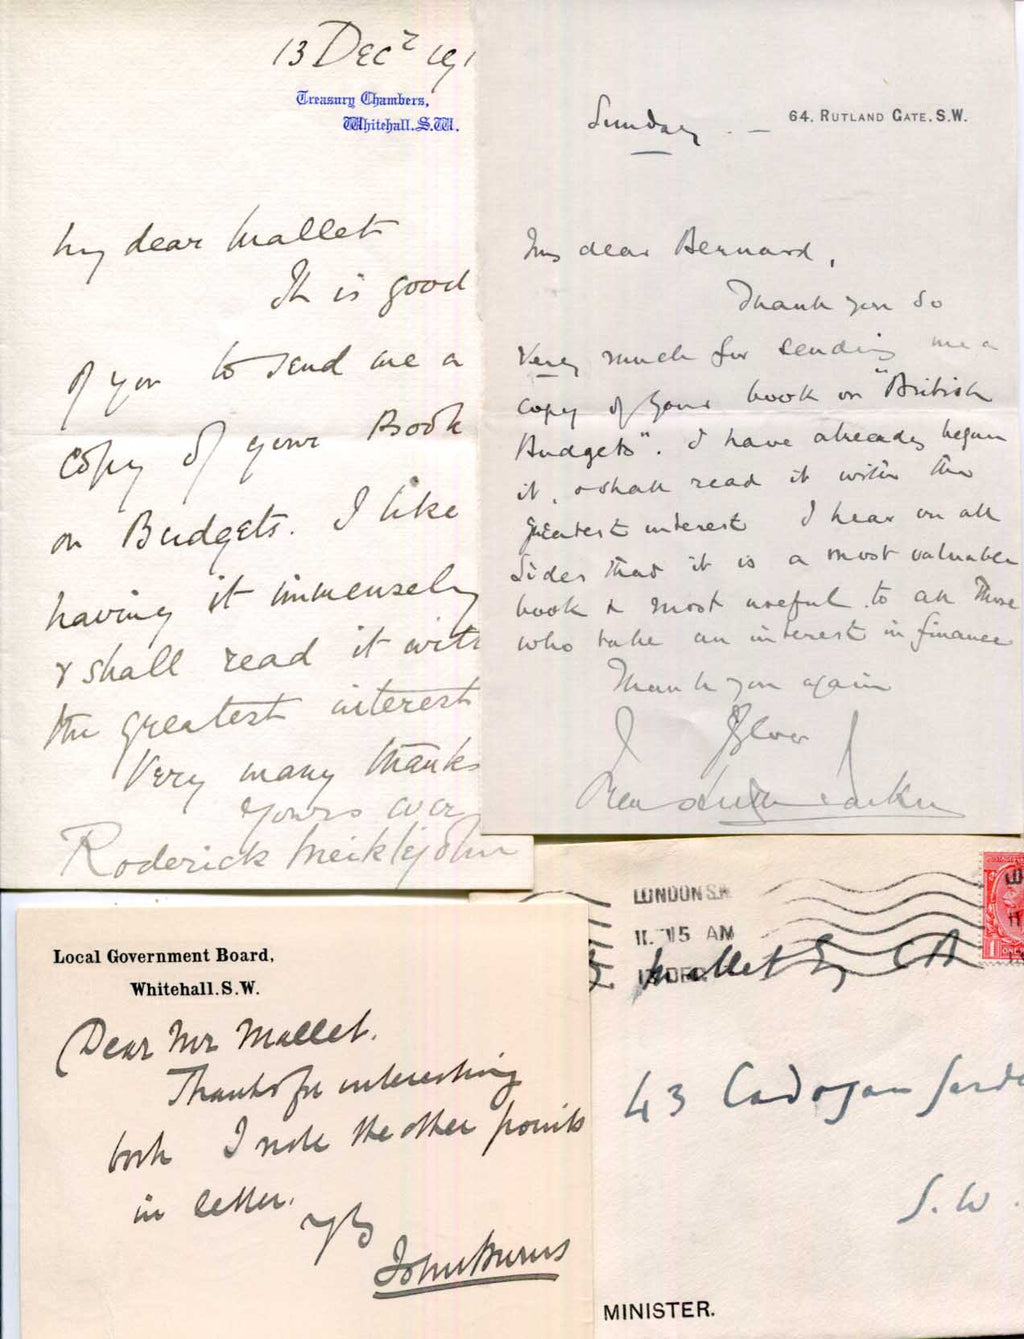 13 Dec^r 191
Treasury Chambers,
Whitehall.S.W.
My dear Mallet
It is good
of you to send me a
copy of your Book
on Budgets. I like
having it immensely
& shall read it with
the greatest interest
Very many thanks
Yours ever
Roderick Meiklejohn
64, RUTLAND GATE. S.W.
Sunday
My dear Bernard,
Thank you so
very much for sending me a
copy of your book on "British
Budgets". I have already begun
it, & shall read it with the
greatest interest I hear on all
sides that it is a most valuable
book & most useful to all those
who take an interest in finance
Thank you again
Local Government Board,
Whitehall.S.W.
Dear Mr Mallet.
Thanks for interesting
book I note the other points
in letter.
John Burns
LONDON S.W.
11. 15 AM
13 DEC
Mallet Esq CB
43 Cadogan Garde
S.W.
MINISTER.